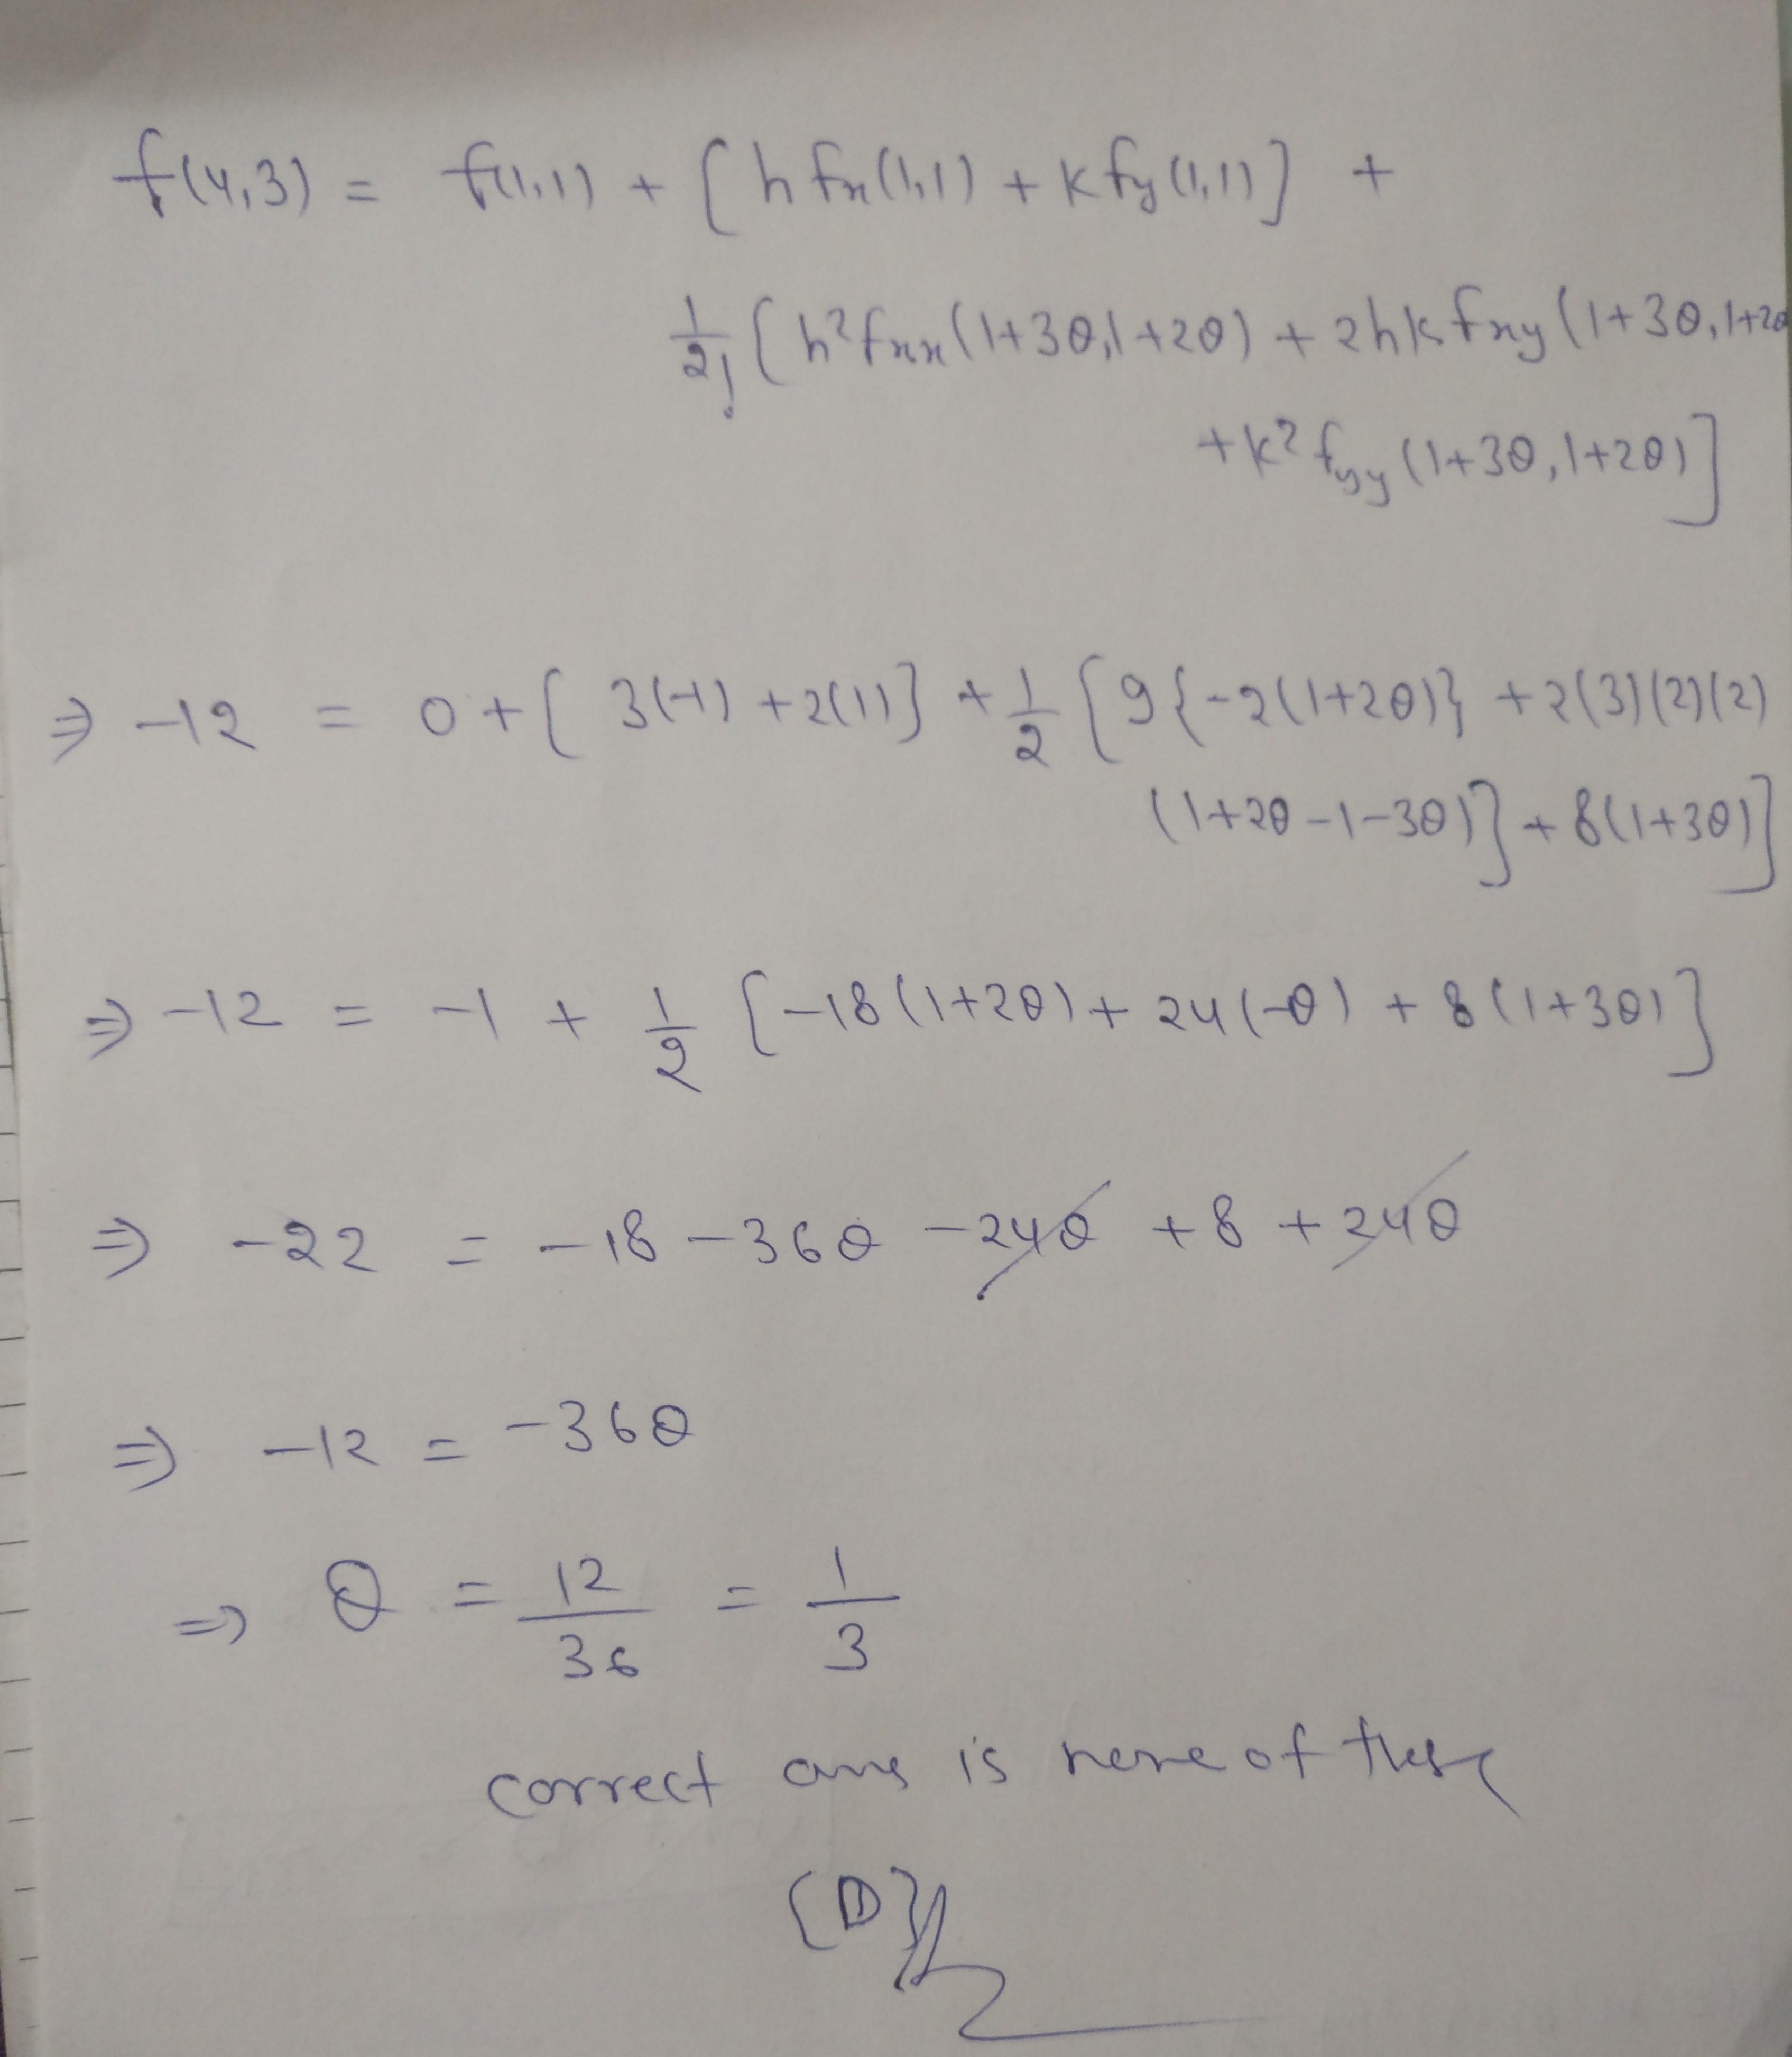 f(4,3) = f(1,1) + [h fx(1,1) + k fy(1,1)] +
1/2! [h² fxx(1+3θ,1+2θ) + 2hk fxy(1+3θ,1+2θ
+ k² fyy (1+3θ,1+2θ)]
⇒ -12 = 0 + [3(-1) + 2(1)] + 1/2 [9{-2(1+2θ)} + 2(3)(2)(2)
(1+2θ-1-3θ)] + 8(1+3θ)]
⇒ -12 = -1 + 1/2 [-18(1+2θ) + 24(-θ) + 8(1+3θ)]
⇒ -22 = -18 - 36θ - 24θ + 8 + 24θ
⇒ -12 = -36θ
⇒ θ = 12/36 = 1/3
correct ans is none of these
{D}